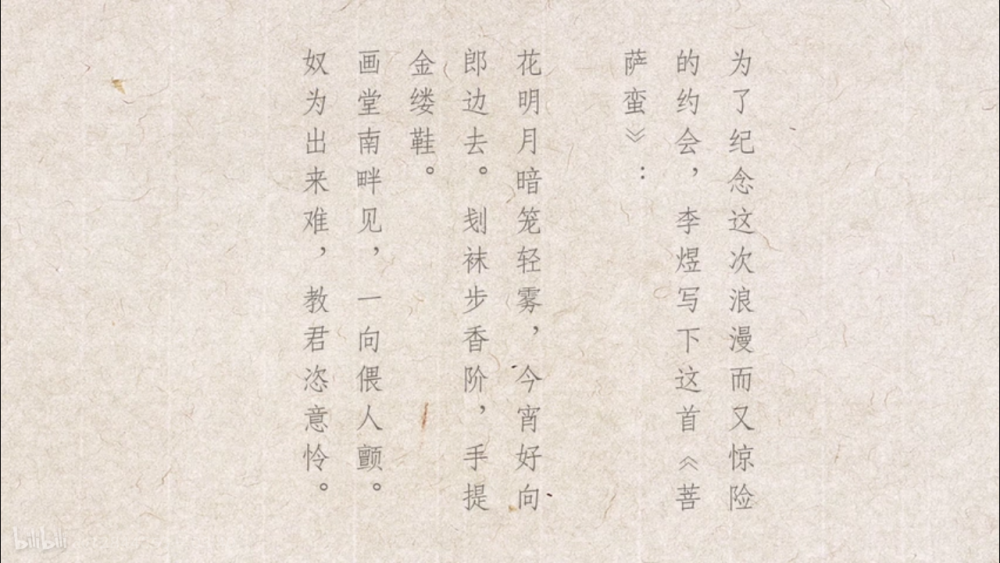 为了纪念这次浪漫而又惊险
的约会，李煜写下这首《菩
萨蛮》：
花明月暗笼轻雾，今宵好向
郎边去。刬袜步香阶，手提
金缕鞋。
画堂南畔见，一向偎人颤。
奴为出来难，教君恣意怜。
bilibili